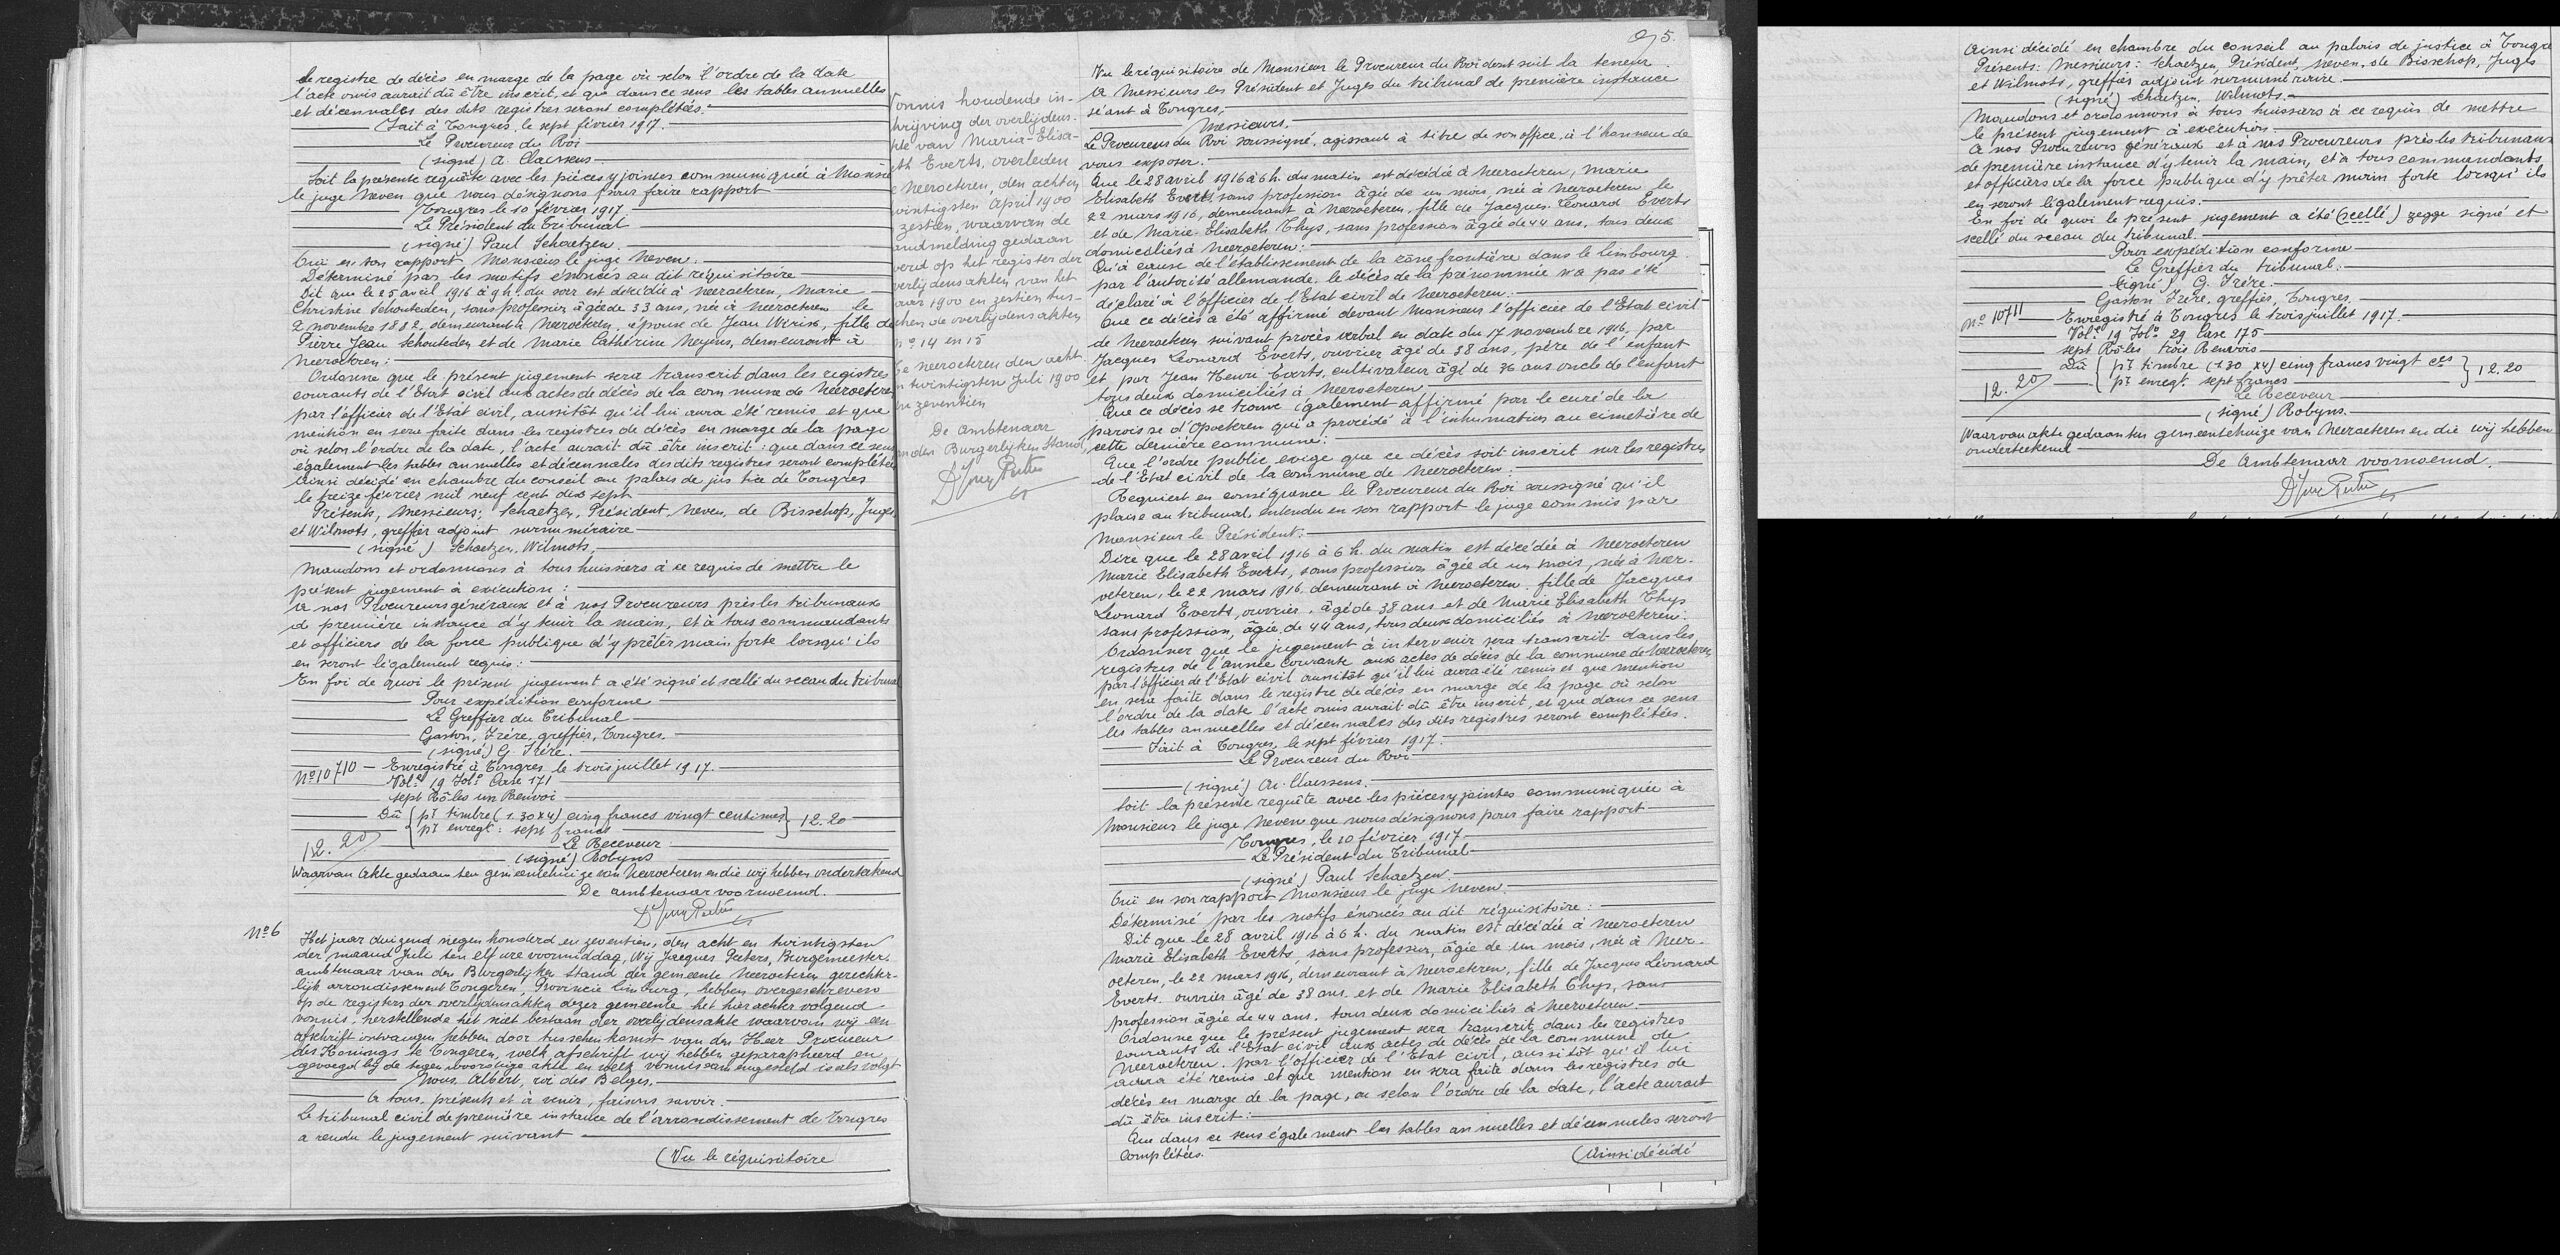 le registre de décès en marge de la page où selon l'ordre de la date
l'acte omis aurait dû être inscrit, et que dans ce sens les tables annuelles
et décennales des dits registres seront complétées.
Fait à Tongres, le sept février 1917.
Le Procureur du Roi
(signé) A. Claessens
Soit la présente requête avec les pièces y jointes communiquée à Monsieur
le juge Neven que nous désignons pour faire rapport
Tongres le 10 février 1917
Le Président du Tribunal
(signé) Paul Schaetzen.
Ouï en son rapport Monsieur le juge Neven.
Déterminé par les motifs énoncés au dit réquisitoire
Dit que le 25 avril 1916 à 9 h. du soir est décédée à Neeroeteren, Marie
Christine Schouteden, sans profession âgée de 33 ans, née à Neeroeteren le
2 novembre 1882, demeurant à Neeroeteren, épouse de Jean Wérix, fille de
Pierre Jean Schouteden et de Marie Cathérine Neyens, demeurant à
Neeroeteren:
Ordonne que le présent jugement sera transcrit dans les registres
courants de l'Etat civil aux actes de décès de la commune de Neeroeteren
par l'officier de l'Etat civil, aussitôt qu'il lui aura été remis et que
mention en sera faite dans les registres de décès en marge de la page
où selon l'ordre de la date, l'acte aurait dû être inscrit: que dans ce sens
également les tables annuelles et décennales des dits registres seront complétées
Ainsi décidé en chambre du conseil au palais de justice de Tongres
le treize février mil neuf cent dix sept
Présents, Messieurs; Schaetzen, Président, Neven, de Bisschop, Juges
et Wilmots, greffier adjoint surnuméraire
(signé) Schaetzen. Wilmots.
Mandons et ordonnons à tous huissiers à ce requis de mettre le
présent jugement à exécution:
A nos Procureurs généraux et à nos Procureurs près les tribunaux
de première instance d'y tenir la main, et à tous commandants
et officiers de la force publique d'y prêter main forte lorsqu'ils
en seront légalement requis:
En foi de quoi le présent jugement a été signé et scellé du sceau du tribunal
Pour expédition conforme
Le Greffier du Tribunal
Gaston, Frère, greffier, Tongres.
(signé) G. Frère.
No 10710 Enregistré à Tongres le trois juillet 1917.
Vol. 19 Fol. Case 171
sept Rôles un Renvoi
Dû { pr timbre (1.30 x 4) cinq francs vingt centimes } 12.20
pr enregt: sept francs
12.20
Le Receveur
(signé) Robyns
Waarvan Akte gedaan ten gemeentehuize van Neeroeteren en die wij hebben onderteekend
De ambtenaar voornoemd.
No 6
Het jaar duizend negen honderd en zeventien, den acht en twintigsten
der maand Juli ten elf ure voormiddag, Wij Jacques Peeters, Burgemeester
ambtenaar van den Burgerlijken Stand der gemeente Neeroeteren gerechter-
lijk arrondissement Tongeren, Provincie Limburg, hebben overgeschreven
op de registers der overlijdensakten dezer gemeente het hierachter volgend
vonnis, herstellende het niet bestaan der overlijdensakte waarvan wij een
afschrift ontvangen hebben door tusschenkomst van den Heer Procureur
des Konings te Tongeren, welk afschrift wij hebben geparapheerd en
gevoegd bij de tegenwoordige akte en welk vonnis saamgesteld is als volgt
Nous, Albert, roi des Belges.
A tous, présents et à venir, faisons savoir.
Le tribunal civil de première instance de l'arrondissement de Tongres
a rendu le jugement suivant
(Vu le réquisitoire
Vonnis houdende in-
schrijving der overlijdens-
akte van Maria-Elisa-
beth Everts, overleden
te Neeroeteren, den acht en
twintigsten April 1900
zestien, waarvan de
randmelding gedaan
werd op het register der
overlijdensakten van het
jaar 1900 en zestien tus-
schen de overlijdensakten
No 14 en 15
Te Neeroeteren den acht
en twintigsten Juli 1900
en zeventien
De Ambtenaar
van den Burgerlijken Stand,
95.
Vu le réquisitoire de Monsieur le Procureur du Roi dont suit la teneur.
A Messieurs les Président et Juges du tribunal de première instance
séant à Tongres,
Messieurs,
Le Procureur du Roi soussigné, agissant à titre de son office, à l'honneur de
vous exposer.
Que le 28 avril 1916 à 6 h. du matin est décédée à Neeroeteren, Marie
Elisabeth Everts, sans profession âgée de un mois, née à Neeroeteren le
22 mars 1916, demeurant à Neeroeteren, fille de Jacques Léonard Everts
et de Marie-Elisabeth Thys, sans profession âgée de 44 ans, tous deux
domiciliés à Neeroeteren:
Qu'à cause de l'établissement de la zône frontière dans le Limbourg.
par l'autorité allemande, le décès de la prénommée n'a pas été
déclaré à l'officier de l'Etat civil de Neeroeteren.
Que ce décès a été affirmé devant Monsieur l'officier de l'Etat civil
de Neeroeteren suivant procès verbal en date du 17 novembre 1916, par
Jacques Leonard Everts, ouvrier âgé de 38 ans, père de l'enfant
et par Jean Henri Everts, cultivateur âgé de 36 ans oncle de l'enfant
tous deux domiciliés à Neeroeteren
Que ce décès se trouve également affirmé par le curé de la
paroisse d'Opoeteren qui a procédé à l'inhumation au cimetière de
cette dernière commune:
Que l'ordre public exige que ce décès soit inscrit sur les registres
de l'Etat civil de la commune de Neeroeteren:
Requiert en conséquence le Procureur du Roi soussigné qu'il
plaise au tribunal entendu en son rapport le juge commis par
Monsieur le Président:
Dire que le 28 avril 1916 à 6 h. du matin est décédée à Neeroeteren
Marie Elisabeth Everts, sans profession âgée de un mois, née à Neer-
oeteren, le 22 mars 1916, demeurant à Neeroeteren, fille de Jacques
Leonard Everts, ouvrier, âgé de 38 ans et de Marie Elisabeth Thys
sans profession, âgée de 44 ans, tous deux domiciliés à Neeroeteren.
Ordonner que le jugement à intervenir sera transcrit dans les
registres de l'année courante aux actes de décès de la commune de Neeroeteren
par l'officier de l'Etat civil aussitôt qu'il lui aura été remis et que mention
en sera faite dans le registre de décès en marge de la page où selon
l'ordre de la date l'acte omis aurait dû être inscrit, et que dans ce sens
les tables annuelles et décennales des dits registres seront complétées.
Fait à Tongres, le sept février 1917.
Le Procureur du Roi
(signé) A. Claessens.
Soit la présente requête avec les pièces y jointes communiquée à
Monsieur le juge Neven que nous désignons pour faire rapport
Tongres, le 10 février 1917
Le Président du Tribunal
(signé) Paul Schaetzen.
Ouï en son rapport Monsieur le juge Neven.
Déterminé par les motifs énoncés au dit réquisitoire:
Dit que le 28 avril 1916 à 6 h. du matin est décédée à Neeroeteren
Marie Elisabeth Everts, sans profession, âgée de un mois, née à Neer-
oeteren, le 22 mars 1916, demeurant à Neeroeteren, fille de Jacques Léonard
Everts, ouvrier âgé de 38 ans, et de Marie Elisabeth Thys, sans
profession âgée de 44 ans, tous deux domiciliés à Neeroeteren.
Ordonne que le présent jugement sera transcrit dans les registres
courants de l'Etat civil aux actes de décès de la commune de
Neeroeteren, par l'officier de l'Etat civil, aussitôt qu'il lui
aura été remis et que mention en sera faite dans les registres de
décès en marge de la page, ou selon l'ordre de la date, l'acte aurait
dû être inscrit:
Que dans ce sens également les tables annuelles et décennales seront
complétées.
(Ainsi décidé
Ainsi décidé en chambre du conseil au palais de justice à Tongres
Présents: Messieurs: Schaetzen, Président, Neven, de Bisschop, Juges
et Wilmots, greffier adjoint surnuméraire.
(signé) Schaetzen, Wilmots.
Mandons et ordonnons à tous huissiers à ce requis de mettre
le présent jugement à exécution
A nos Procureurs généraux et à nos Procureurs près les tribunaux
de première instance d'y tenir la main, et à tous commandants
et officiers de la force publique d'y prêter main forte lorsqu'ils
en seront légalement requis.
En foi de quoi le présent jugement a été (scellé) zegge signé et
scellé du sceau du tribunal.
Pour expédition conforme
Le Greffier du tribunal:
(signé) G. Frère.
Gaston Frère, greffier, Tongres.
No 10711 Enregistré à Tongres le trois juillet 1917.
Vol. 19 Fol. 29 Case 175
sept Rôles trois Renvois
Dû { pr timbre (1.30 x 4) cinq francs vingt ces } 12.20
pr enregt sept francs
12.20
Le Receveur
(signé) Robyns.
Waarvan akte gedaan ten gemeentehuize van Neeroeteren en die wij hebben
onderteekend
De Ambtenaar voornoemd.